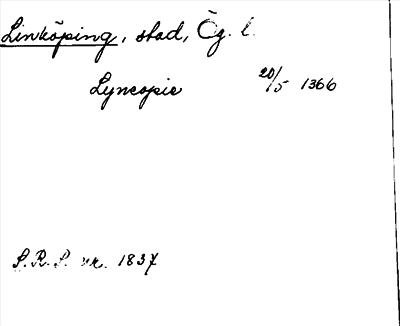 Linköping, stad, Ög. l.
Lyncopie 20/5 1366
S.R.P. nr. 1837